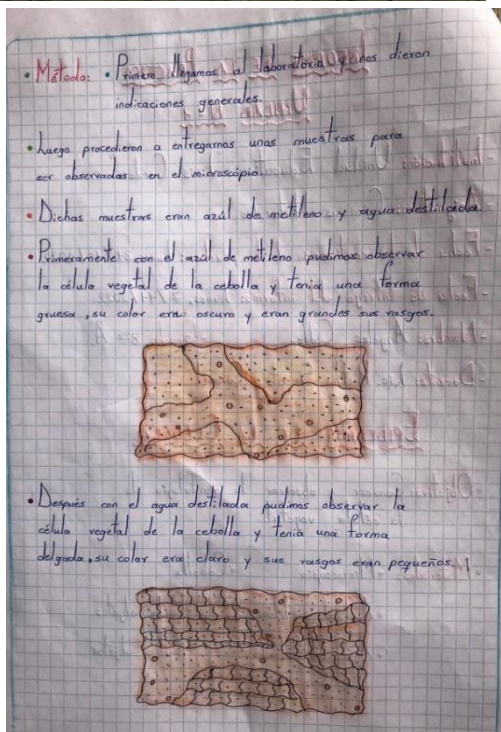 • Método: • Primero llegamos al laboratorio y nos dieron
indicaciones generales.
• Luego procedieron a entregarnos unas muestras para
ser observadas en el microscópio
• Dichas muestras eran azúl de metileno y agua destilada.
• Primeramente con el azúl de metileno pudimos observar
la célula vegetal de la cebolla y tenia una forma
gruesa, su color era oscuro y eran grandes sus rasgos.
• Después con el agua destilada pudimos observar la
célula vegetal de la cebolla y tenia una forma
delgada, su color era claro y sus rasgos eran pequeños.